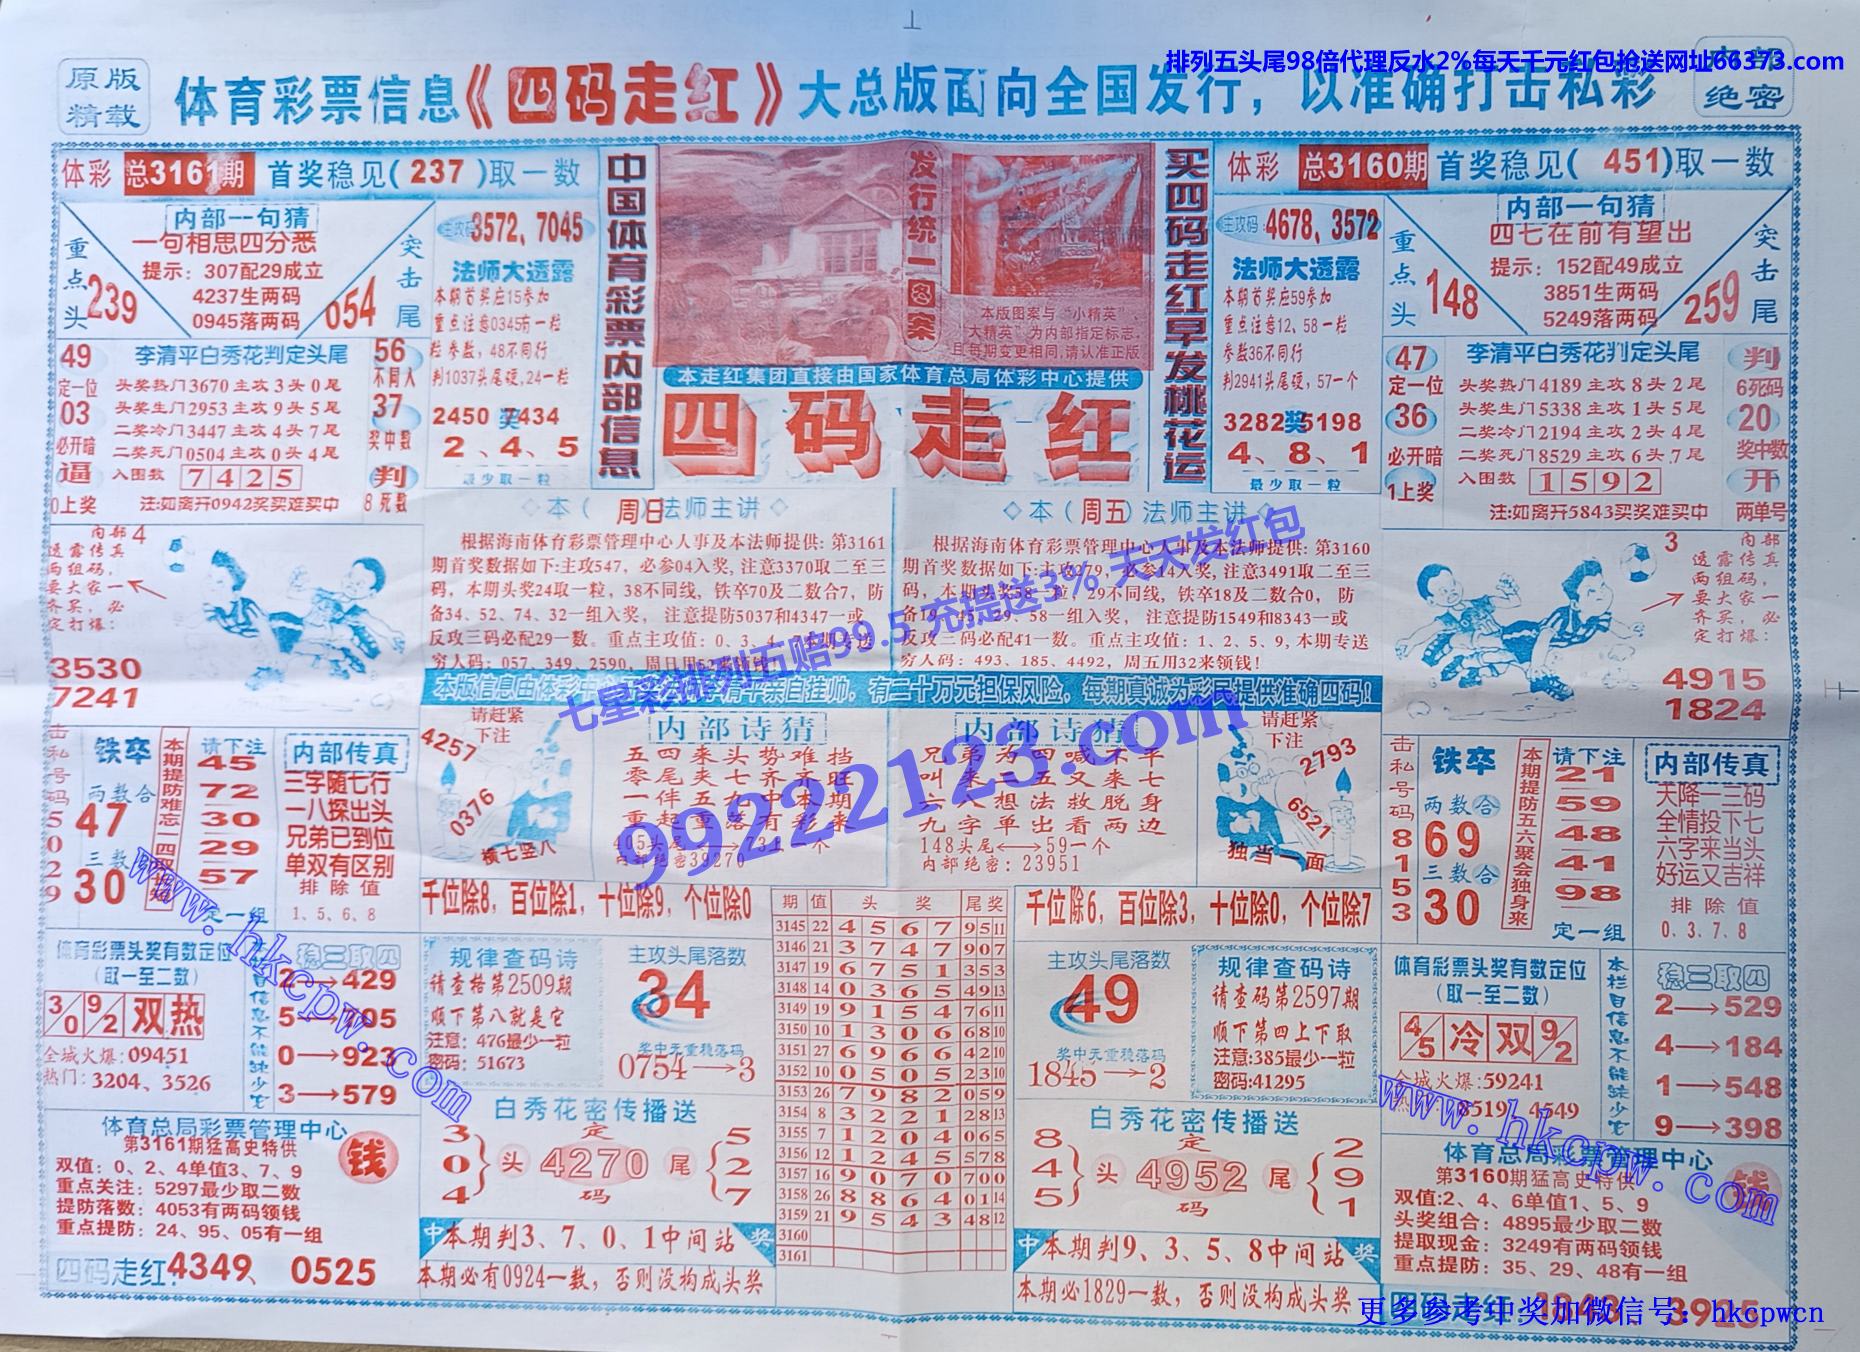 排列五头尾98倍代理反水2%每天千元红包抢送网址66373.com
原版
精载
体育彩票信息《四码走红》大总版面向全国发行，以准确打击私彩
绝密
体彩 总3161期 首奖稳见(237)取一数
内部一句猜
一句相思四分悉
提示：307配29成立
4237生两码
0945落两码
重点头
239
突击尾
054
主攻码 3572、7045
法师大透露
本期首奖应15参加
重点注意0345有一粒
粒参数，48不同行
判1037头尾硬，24一粒
2450奖7434
2、4、5
最少取一粒
49
定一位
03
必开暗
逼
0上奖
李清平白秀花判定头尾
头奖热门3670主攻3头0尾
头奖生门2953主攻9头5尾
二奖冷门3447主攻4头7尾
二奖死门0504主攻0头4尾
入围数 7425
注:如离开0942奖买难买中
56
不同入
37
奖中数
判
8死数
中国体育彩票内部信息
发行统一图案
本版图案与“小精英”、
“大精英”为内部指定标志，
且每期变更相同,请认准正版
本走红集团直接由国家体育总局体彩中心提供
四码走红
买四码走红早发桃花运
体彩 总3160期 首奖稳见(451)取一数
主攻码:4678、3572
法师大透露
本期首奖应59参加
重点注意12、58一粒
参数36不同行
判2941头尾硬，57一个
3282奖5198
4、8、1
最少取一粒
内部一句猜
四七在前有望出
提示：152配49成立
3851生两码
5249落两码
重点头
148
突击尾
259
47
定一位
36
必开暗
1上奖
李清平白秀花判定头尾
头奖热门4189主攻8头2尾
头奖生门5338主攻1头5尾
二奖冷门2194主攻2头4尾
二奖死门8529主攻6头7尾
入围数 1592
注:如离开5843买奖难买中
判
6死码
20
奖中数
开
两单号
内部 4
透露传真
两组码，
要大家一
齐买，必
定打爆：
3530
7241
◇本（周日）法师主讲◇
根据海南体育彩票管理中心人事及本法师提供：第3161
期首奖数据如下:主攻547，必参04入奖，注意3370取二至三
码，本期头奖24取一粒，38不同线，铁卒70及二数合7，防
备34、52、74、32一组入奖， 注意提防5037和4347一或
反攻三码必配29一数。重点主攻值：0、3、4
穷人码：057、349、2590，周日用52来领钱！
◇本（周五）法师主讲◇
根据海南体育彩票管理中心人事及本法师提供：第3160
期首奖数据如下:主攻279，必参14入奖，注意3491取二至三
码，本期头奖58一粒，29不同线，铁卒18及二数合0， 防
备19、45、29、58一组入奖， 注意提防1549和8343一或
反攻三码必配41一数。重点主攻值：1、2、5、9，本期专送
穷人码：493、185、4492，周五用32来领钱！
3 内部
透露传真
两组码，
要大家一
齐买，必
定打爆：
4915
1824
七星彩排列五赔99.5 充提送3% 天天发红包
99222123.com
有二十万元担保风险，每期真诚为彩民提供准确四码！
击私号码50229
铁卒
两数合
47
三数
30
请下注
45
72
30
29
57
定一组
内部传真
三字随七行
一八探出头
兄弟已到位
单双有区别
排除值
1、5、6、8
请赶紧
下注
4257
0376
横七竖八
内部诗猜
五四来头势难挡
零尾夹七齐齐旺
一伴五九中本期
重起重落有彩来
内部绝密39270
内部诗猜
兄弟为四喊不平
叫来二五又来七
六八想法救脱身
九字单出看两边
148头尾⟷59一个
内部绝密：23951
请赶紧
下注
2793
6521
独当一面
击私号码88153
铁卒
两数合
69
三数合
30
本期提防五六聚会独身来
请下注
21
59
48
41
98
定一组
内部传真
天降一三码
全情投下七
六字来当头
好运又吉祥
排除值
0、3、7、8
千位除8，百位除1，十位除9，个位除0
千位除6，百位除3，十位除0，个位除7
体育彩票头奖有数定位
（取一至二数）
3/0 9/2 双热
全城火爆:09451
热门：3204、3526
稳三取四
2→429
5→705
0→923
3→579
规律查码诗
请查格第2509期
顺下第八就是它
注意：476最少一粒
密码：51673
主攻头尾落数
34
奖中无重稳落码
0754→3
期 值 头奖 尾奖
3145 22 4567 9511
3146 21 3747 907
3147 19 6751 353
3148 14 0365 4913
3149 19 9154 7611
3150 10 1306 6810
3151 27 6966 4210
3152 10 0505 2310
3153 26 7982 059
3154 8 3221 2813
3155 7 1204 065
3156 12 1245 578
3157 16 9070 700
3158 26 8864 0114
3159 21 9543 4812
3160
3161
主攻头尾落数
49
奖中无重稳落码
1845→2
规律查码诗
请查码第2597期
顺下第四上下取
注意:385最少一粒
密码:41295
体育彩票头奖有数定位
（取一至二数）
4/5 冷双 9/2
全城火爆:59241
8519、4549
本栏目信息不能缺少它
稳三取四
2→529
4→184
1→548
9→398
体育总局彩票管理中心
第3161期猛高史特供
钱
双值：0、2、4单值3、7、9
重点关注：5297最少取二数
提防落数：4053有两码领钱
重点提防：24、95、05有一组
四码走红：4349、0525
白秀花密传播送
304 头 定4270码 尾 527
中 本期判3、7、0、1中间站 奖
本期必有0924一数，否则没构成头奖
白秀花密传播送
845 头 定4952码 尾 291
中 本期判9、3、5、8中间站 奖
本期必1829一数，否则没构成头奖
体育总局彩票管理中心
第3160期猛高史特供
钱
双值:2、4、6单值1、5、9
头奖组合：4895最少取二数
提取现金：3249有两码领钱
重点提防：35、29、48有一组
www.hkcpw.com
www.hkcpw.com
更多参考中奖加微信号：hkcpwcn